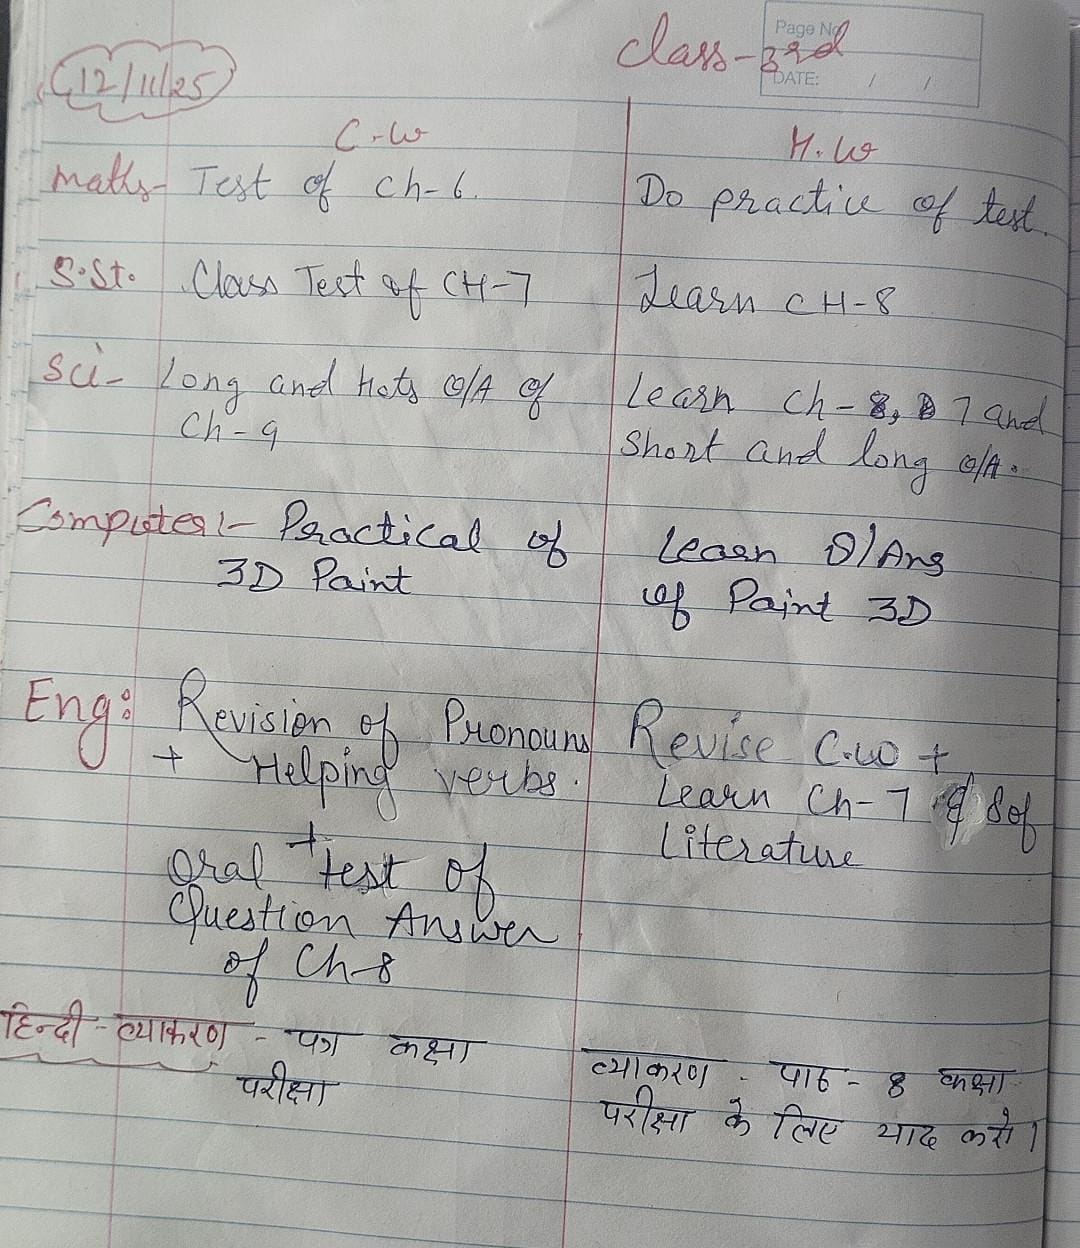 Page No
class-3rd
DATE: / /
12/11/25
C.w
H.w
Maths- Test of Ch-6.
Do practice of test.
S.St. Class Test of CH-7
Learn CH-8
Sci- Long and Hots Q/A of
Ch-9
Learn Ch-8, 7 and
Short and long Q/A.
Computer:- Practical of
3D Paint
Learn Q/Ans
of Paint 3D
Eng: Revision of Pronouns
+ Helping verbs.
+
Oral test of
Question Answer
of Ch-8
Revise C.w +
Learn Ch-7 & 8 of
Literature
हिन्दी - व्याकरण - पत्र कक्षा
परीक्षा
व्याकरण - पाठ - 8 कक्षा
परीक्षा के लिए याद करो।